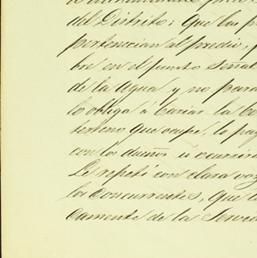 del Distrito; Que las p
pertenecian al predio,
bre en el punto Señal
de la Agua, y no para
lo obliga á variar la
terreno que ocupe, lo pag
con los dueños ú ocurrira
Le repito con clara voz
los Concurrentes, Que
camente de la